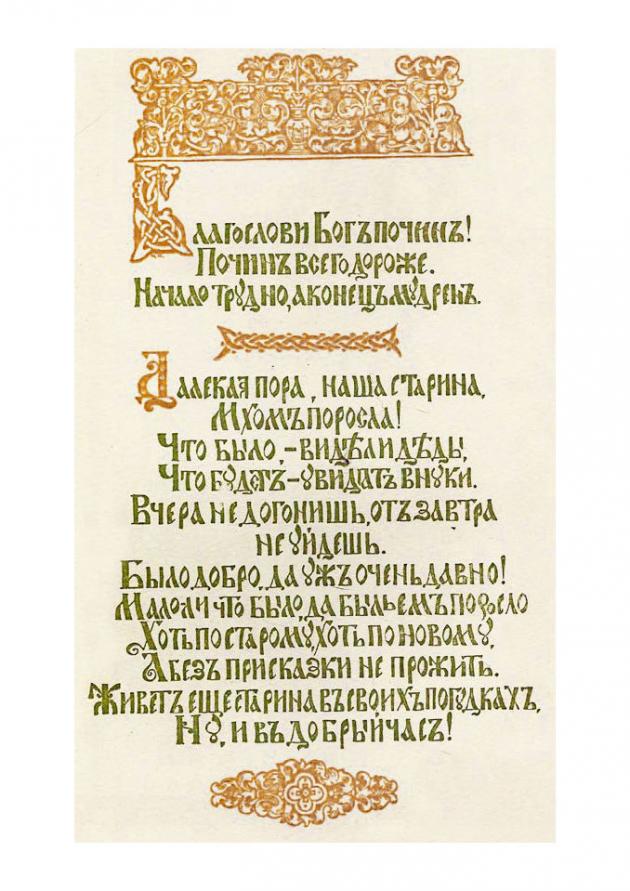 Благослови Богъ починъ!
Починъ всего дороже.
Начало трудно, а конецъ мудренъ.
Далекая пора, наша старина,
Мхомъ поросла!
Что было, – видѣли дѣды,
Что будетъ – увидятъ внуки.
Вчера не догонишь, отъ завтра
не уйдешь.
Было добро, да ужъ очень давно!
Мало ли что было, да быльемъ поросло
Хоть по старому, хоть по новому,
А безъ присказки не прожить.
Живетъ еще старина въ своихъ погудкахъ,
Ну, и въ добрый часъ!